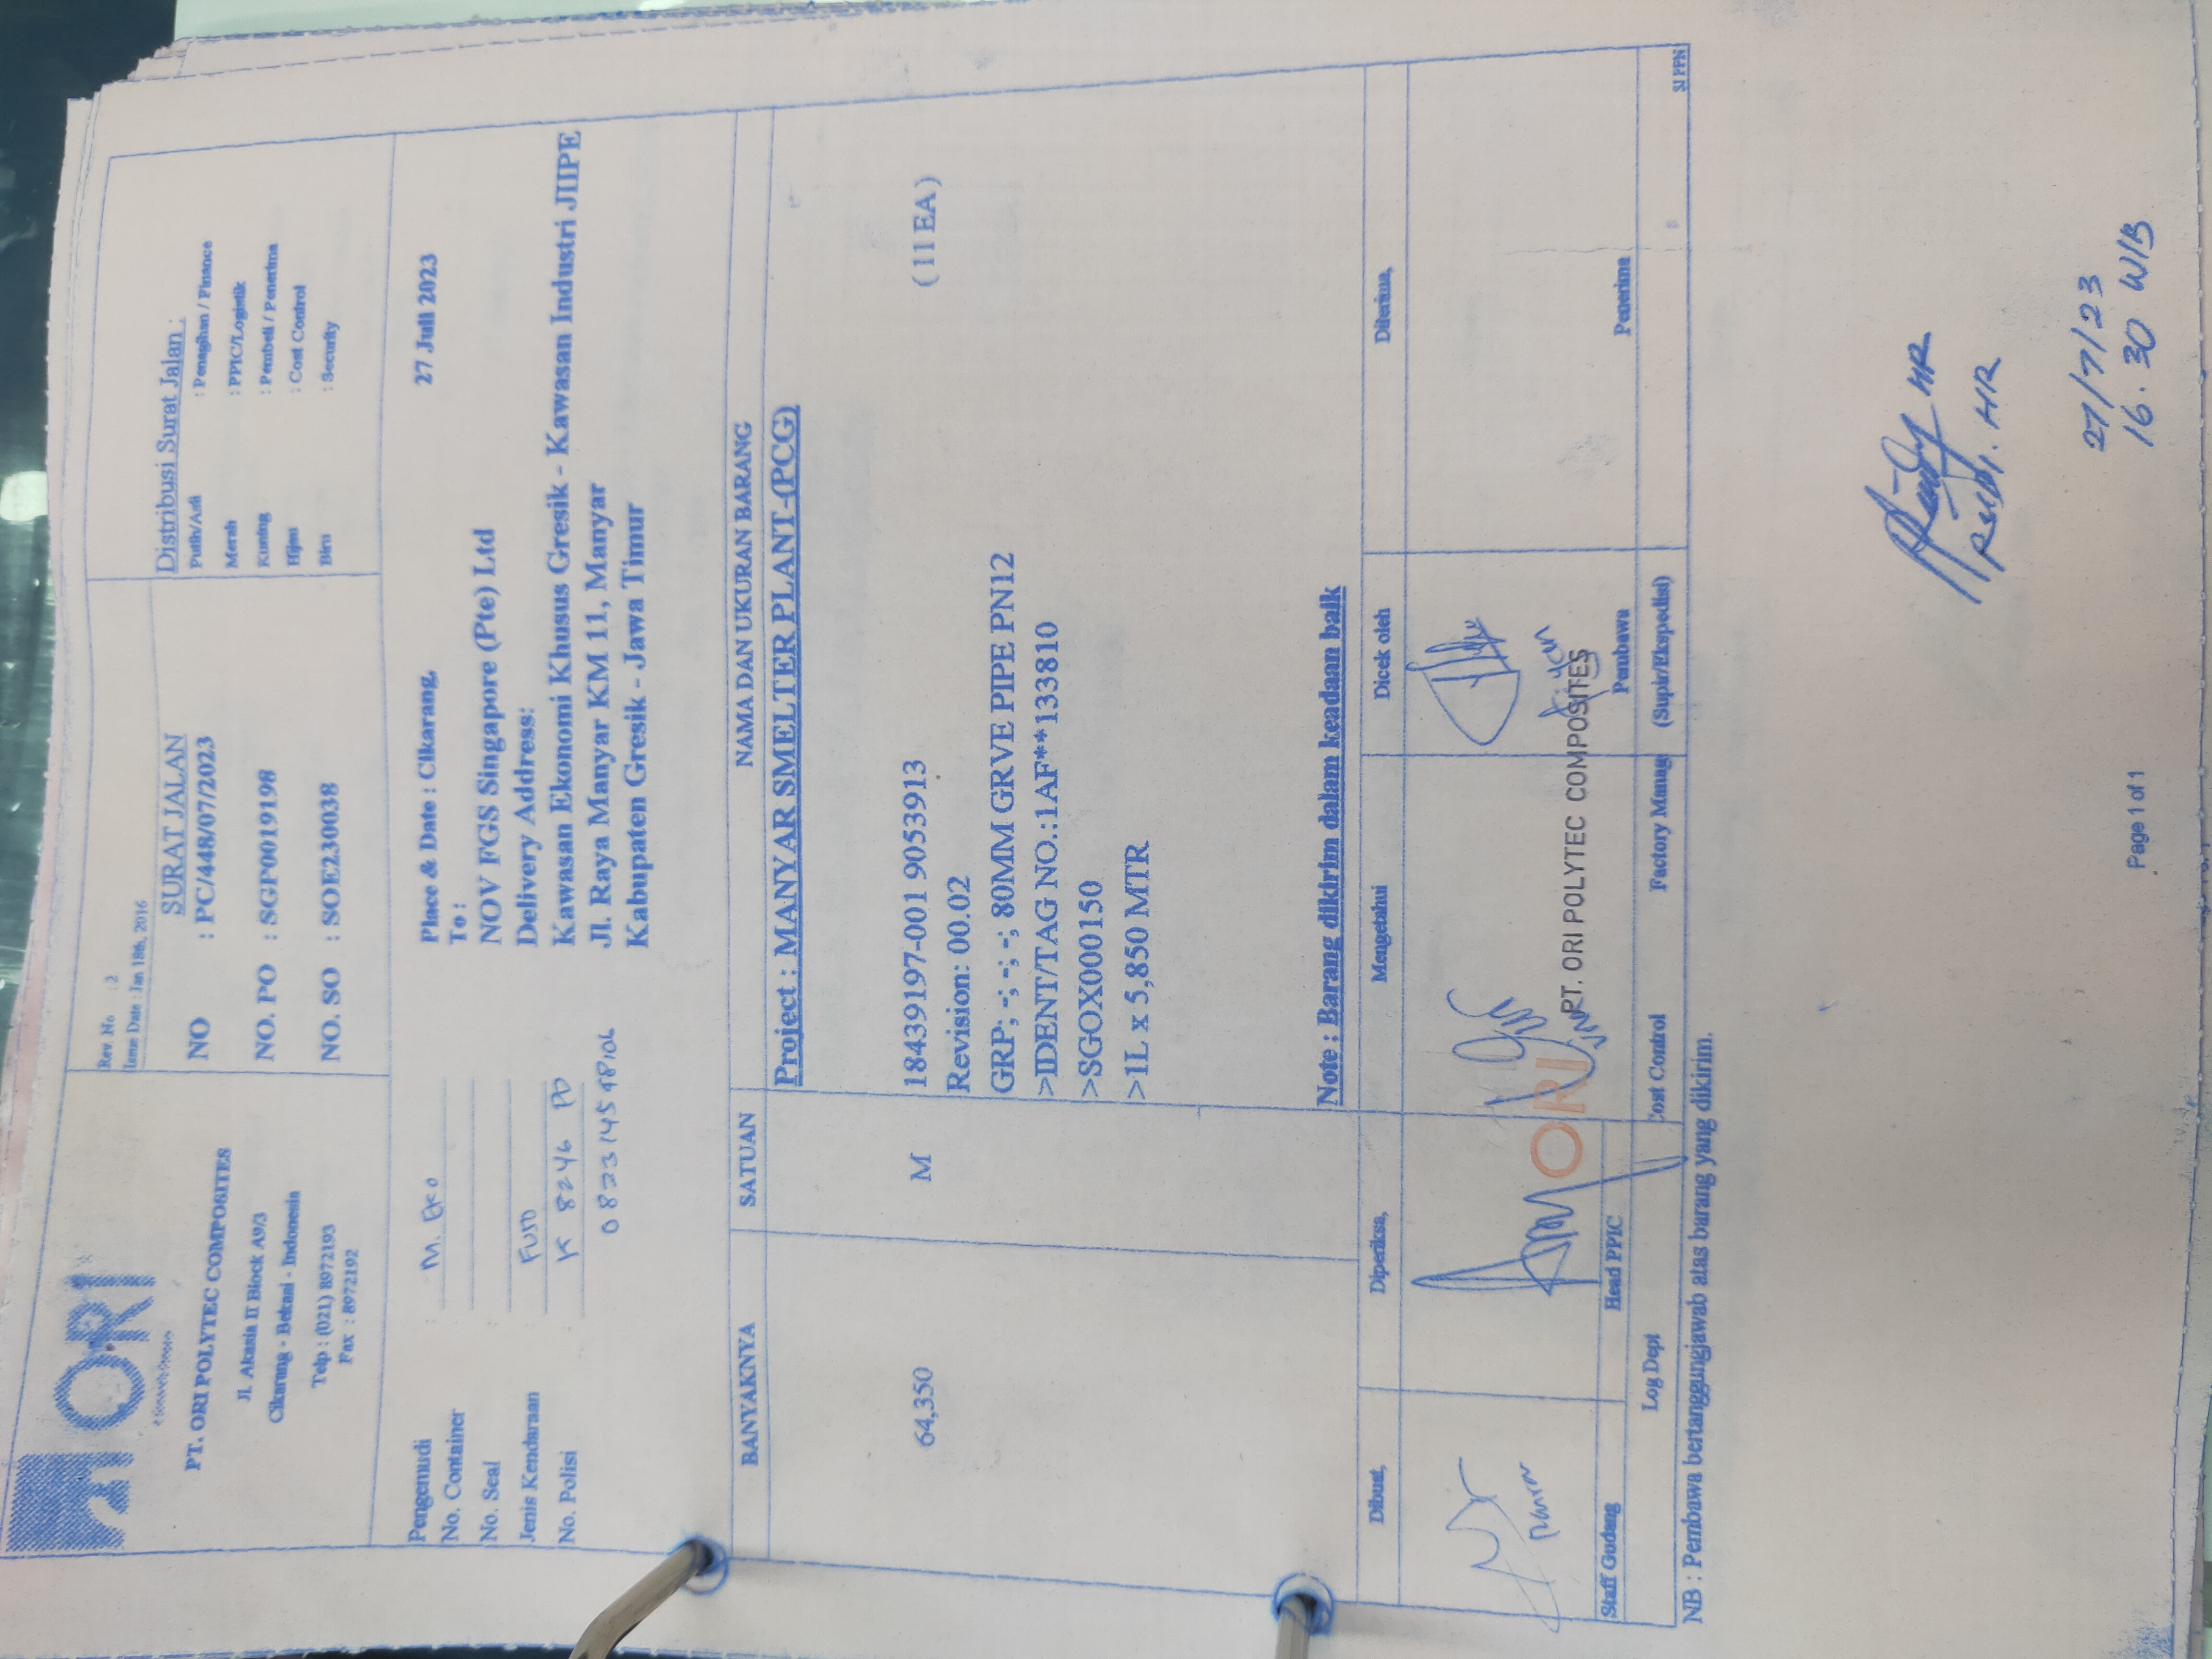 ORI
PT. ORI POLYTEC COMPOSITES
Jl. Akasia II Block A9/3
Cikarang - Bekasi - Indonesia
Telp : (021) 8972193
Fax : 8972192
Rev. No : 2
Issue Date : Jan 18th, 2016
SURAT JALAN
NO : PC/448/07/2023
NO. PO : SGP0019198
NO. SO : SOE230038
Distribusi Surat Jalan :
Putih/Asli : Penagihan / Finance
Merah : PPIC/Logistik
Kuning : Pembeli / Penerima
Hijau : Cost Control
Biru : Security
Pengemudi : M. EKO
No. Container
No. Seal
Jenis Kendaraan : FUSO
No. Polisi : K 8246 PD
Place & Date : Cikarang, 27 Juli 2023
To :
NOV FGS Singapore (Pte) Ltd
Delivery Address:
Kawasan Ekonomi Khusus Gresik - Kawasan Industri JIIPE
Jl. Raya Manyar KM 11, Manyar
Kabupaten Gresik - Jawa Timur
BANYAKNYA SATUAN NAMA DAN UKURAN BARANG
Project : MANYAR SMELTER PLANT-(PCG)
64,350 M 18439197-001 9053913 (11 EA)
Revision: 00.02
GRP; -; -; -; 80MM GRVE PIPE PN12
>IDENT/TAG NO.:1AF**133810
>SGOX000150
>1L x 5,850 MTR
Note : Barang dikirim dalam keadaan baik
Dibuat, Diperiksa, Mengetahui Dicek oleh Diterima,
ORI
PT. ORI POLYTEC COMPOSITES
Staff Gudang Head PPIC Cost Control Factory Manag Pembawa Penerima
Log Dept (Supir/Ekspedisi)
SJ PPN
NB : Pembawa bertanggungjawab atas barang yang dikirim.
27/7/23
16.30 WIB
Page 1 of 1